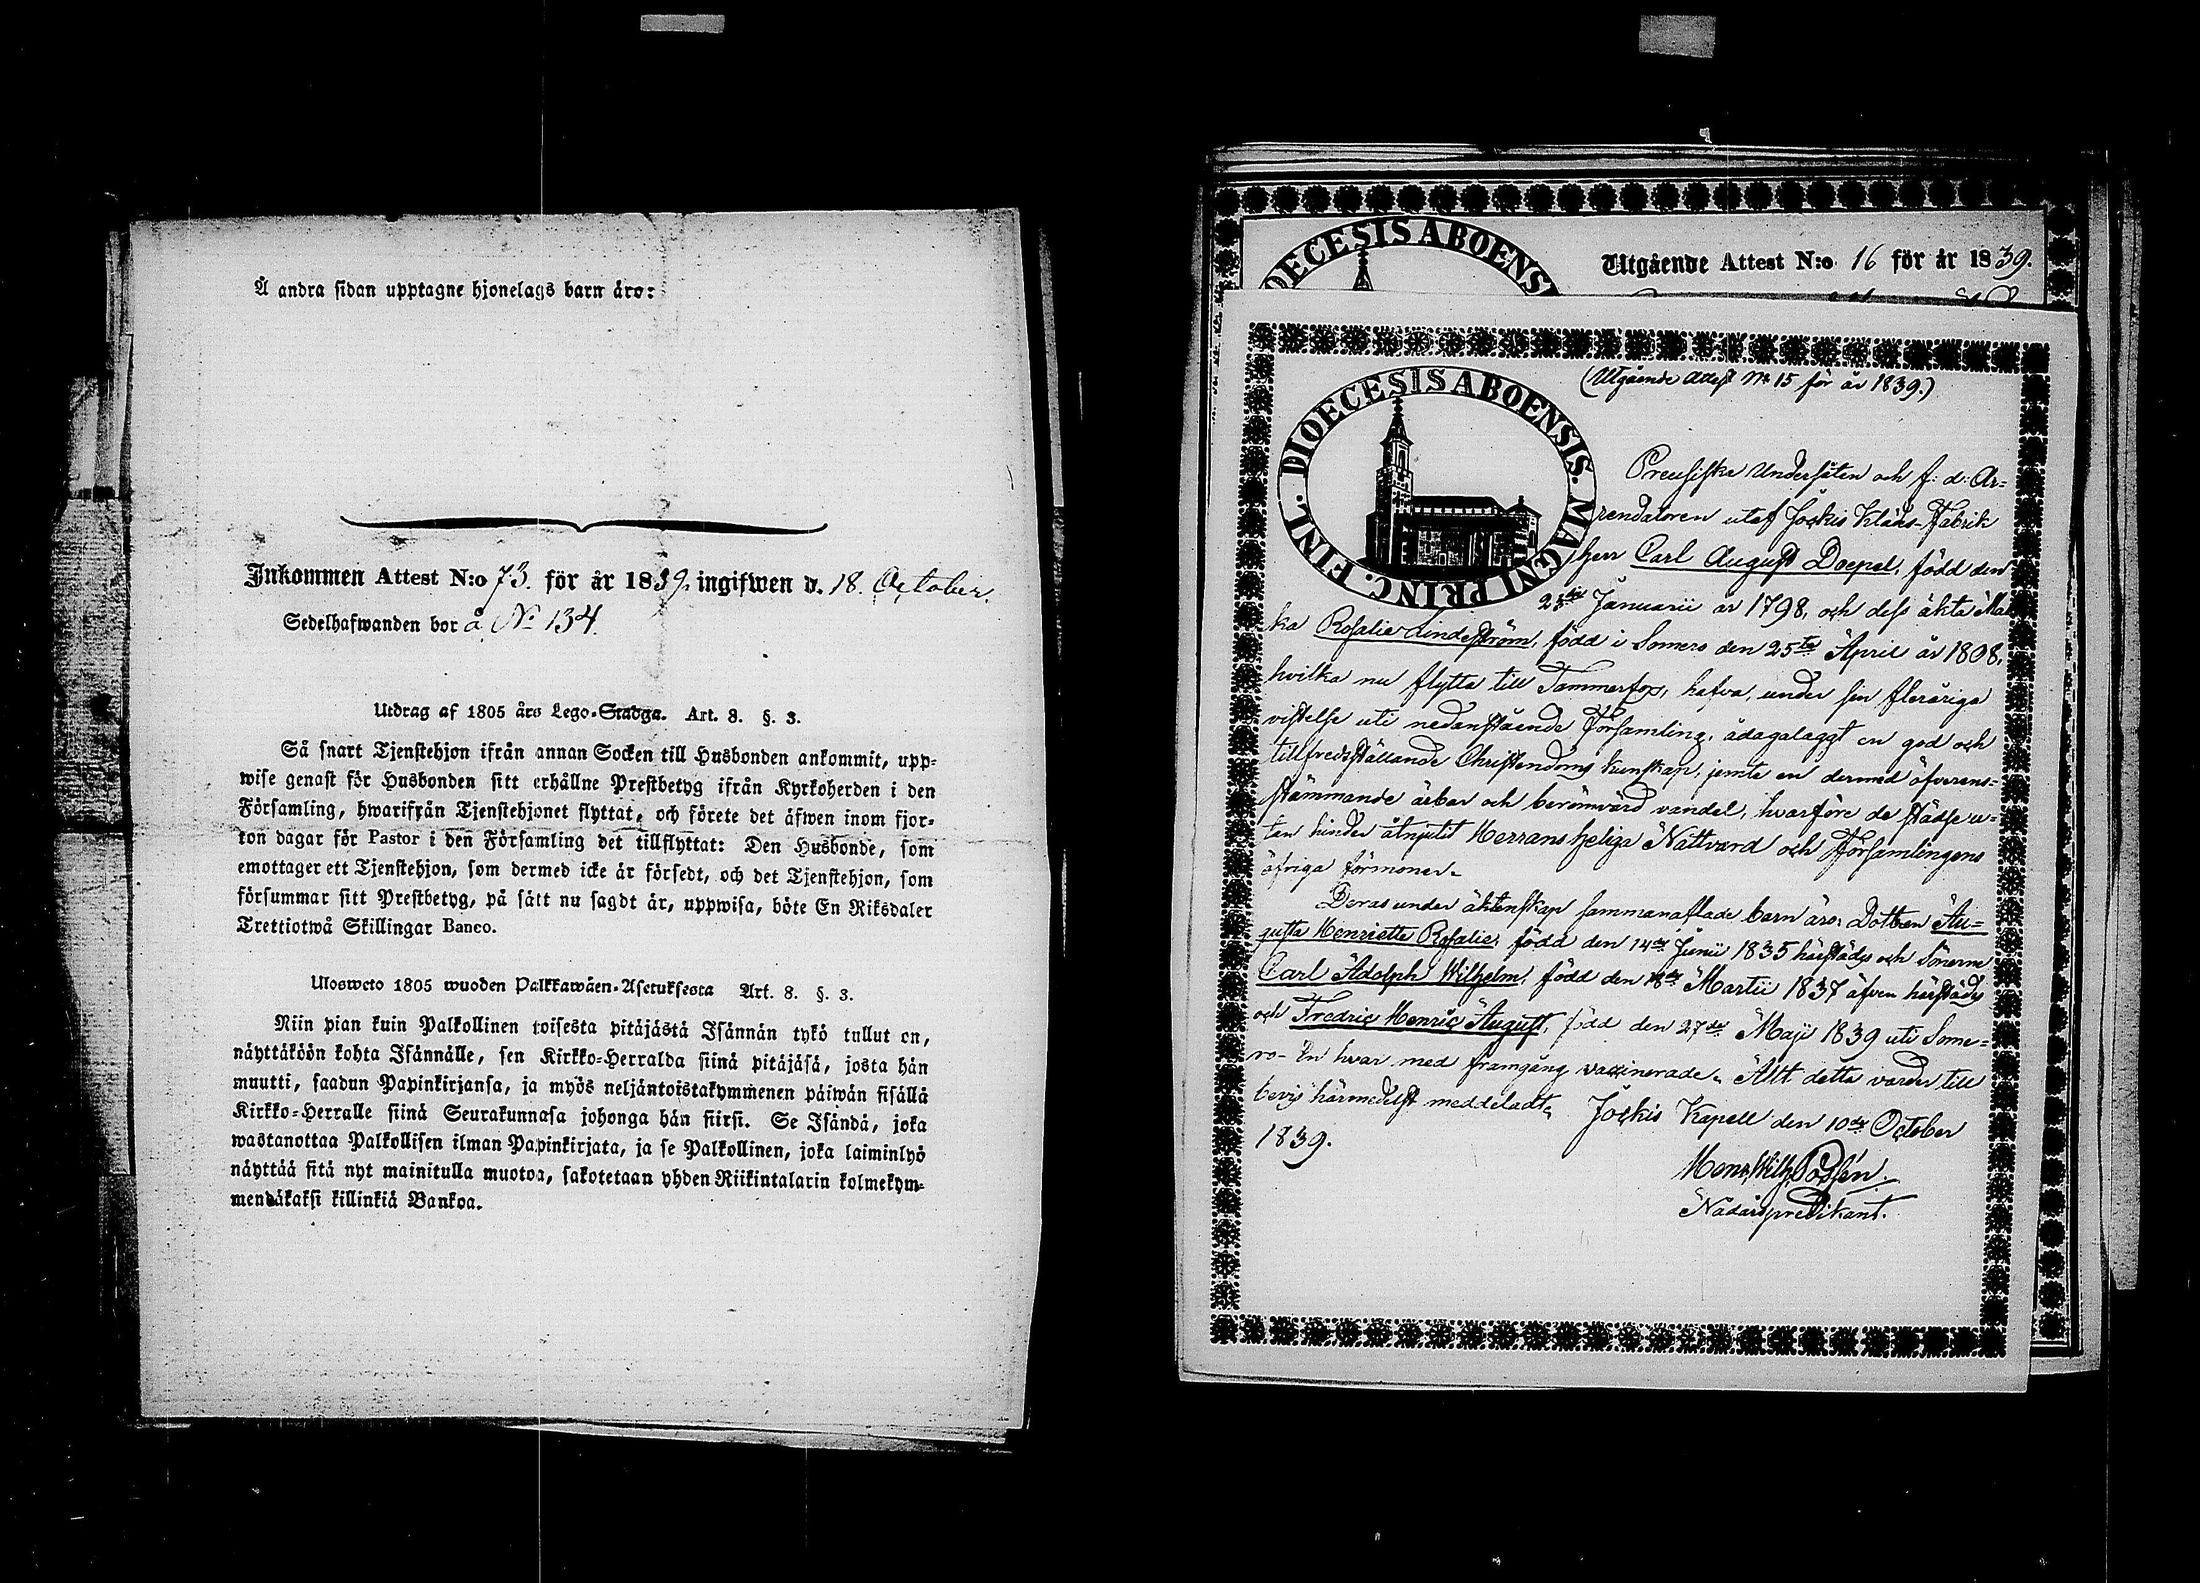 Å andra sidan upptagne hjonelags barn äro:
Inkommen Attest N:o 73. för år 1839, ingifwen d. 18. October.
Sedelhafwanden bor å N:o 134.
Utdrag af 1805 års Lego-Stadga. Art. 8. §. 3.
Så snart Tjenstehjon ifrån annan Socken till Husbonden ankommit, upp-
wise genast för Husbonden sitt erhållne Prestbetyg ifrån Kyrkoherden i den
Församling, hwarifrån Tjenstehjonet flyttat, och förete det äfwen inom fjor-
ton dagar för Pastor i den Församling det tillflyttat: Den Husbonde, som
emottager ett Tjenstehjon, som dermed icke är försedt, och det Tjenstehjon, som
försummar sitt Prestbetyg, på sätt nu sagdt är, uppwisa, böte En Riksdaler
Trettiotwå Skillingar Banco.
Ulosweto 1805 wuoden Palkkawäen-Asetuksesta Art. 8. §. 3.
Niin pian kuin Palkollinen toisesta pitäjästä Isännän tykö tullut on,
näyttäköön kohta Isännälle, sen Kirkko-Herralda siinä pitäjäsä, josta hän
muutti, saadun Papinkirjansa, ja myös neljäntoistakymmenen päiwän sisällä
Kirkko-Herralle siinä Seurakunnasa johonga hän siirsi. Se Isändä, joka
wastanottaa Palkollisen ilman Papinkirjata, ja se Palkollinen, joka laiminlyö
näyttää sitä nyt mainitulla muotoa, sakotetaan yhden Riikintalarin kolmekym-
mendäkaksi killinkiä Bankoa.
DIOECESIS ABOENSI
Utgående Attest N:o 16 för år 1839.
DIOECESIS ABOENSIS. MAGNI PRINC. FINL.
(Utgående Attest No 15 för år 1839.)
Preusiska Undersåten och f: d: Ar-
rendatoren utaf Jockis Klädes-Fabrik
herr Carl August Doepel, född den
25te Januarii år 1798, och dess äkta Ma-
ka Rosalie Lindeström, född i Somero den 25te April år 1808,
hvilka nu flytta till Tammerfors, hafva, under sin fleråriga
vistelse uti nedanstående Församling, ådagalaggt en god och
tillfredsställande Christendoms kunskap, jemte en dermed öfverens-
stämmande ärbar och berömvärd vandel, hvarföre de städse u-
tan hinder åtnjutit Herrans heliga Nattvard och Församlingens
öfriga förmoner.
Deras under äktenskap sammanaflade barn äro: Dottren Au-
gusta Henriette Rosalie, född den 14de Junii 1835 härstädes och Sönerne
Carl Adolph Wilhelm, född den 18de Martii 1837 äfven härstädes
och Fredric Henric August, född den 27de Maji 1839 uti Some-
ro - En hvar med framgång vaccinerade. Allt detta varder till
bevis härmedelst meddeladt. Jockis Kapell den 10de October
1839.
Henr. Wilh.
Nådårspredikant.